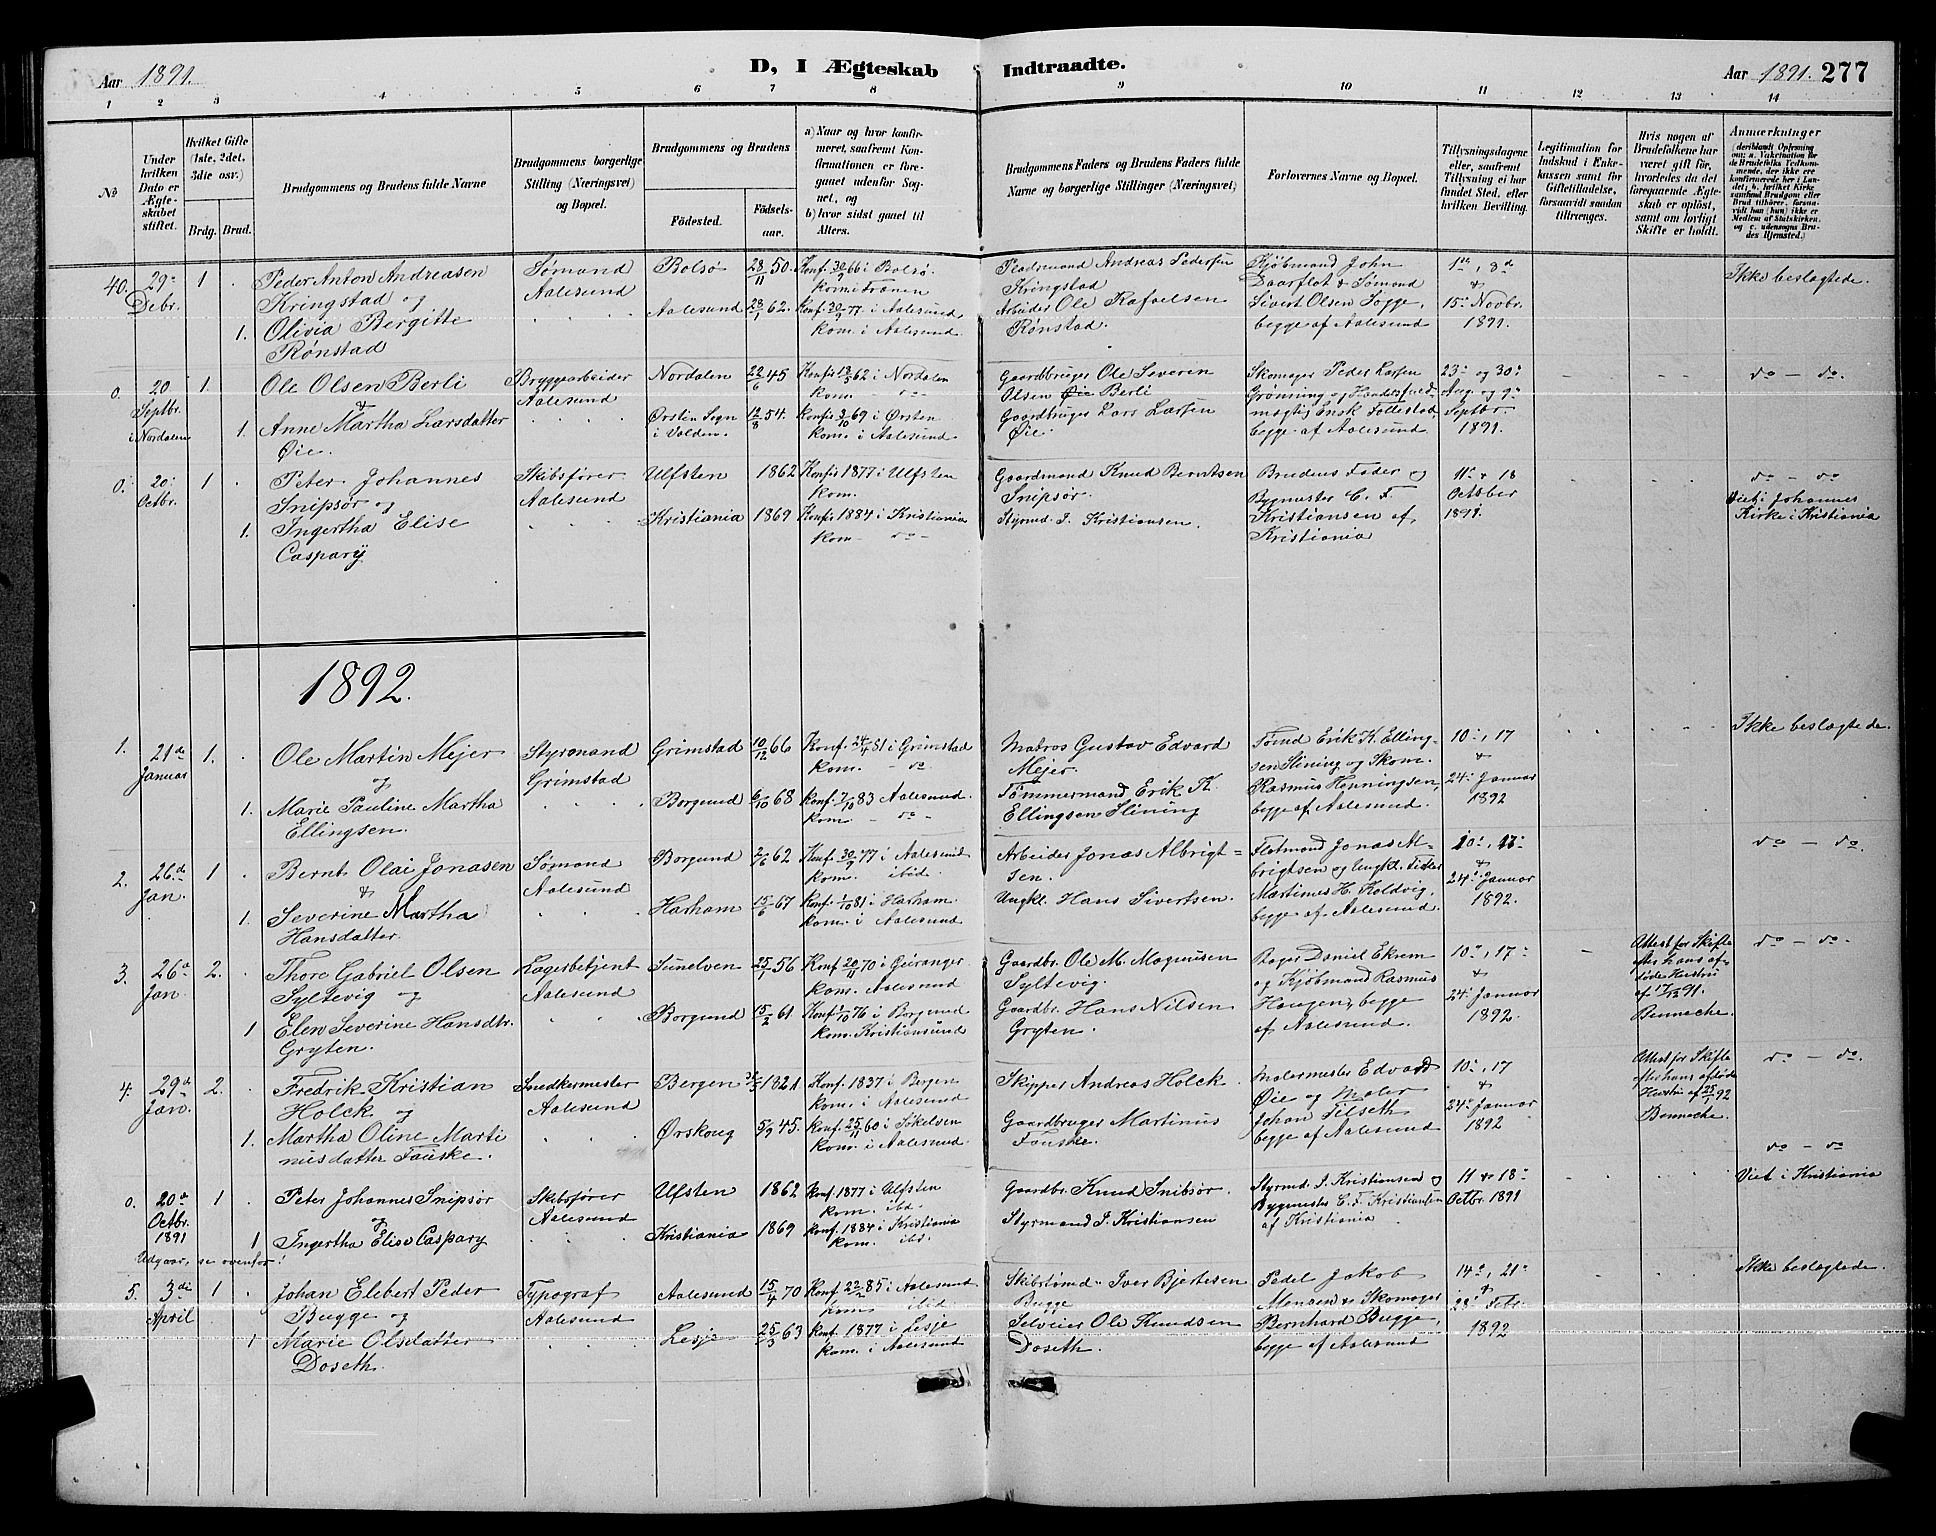 Aar 1891.
D, I Ægteskab Indtraadte.
Aar 1891. 277
1 2 3 4 5 6 7 8 9 10 11 12 13 14
№
Under hvilken Dato er Ægteskabet stiftet.
Hvilket Gifte (1ste, 2det, 3die osv.)
Brdg. Brud.
Brudgommens og Brudens fulde Navne
Brudgommens borgerlige Stilling (Næringsvei) og Bopæl.
Brudgommens og Brudens
Födested. Födselsaar.
a) Naar og hvor konfirmeret, saafremt Konfirmationen er foregaaet udenfor Sognet, og b) hvor sidst gaaet til Alters.
Brudgommens Faders og Brudens Faders fulde Navne og borgerlige Stillinger (Næringsvei)
Forlovernes Navne og Bopæl.
Tillysningsdagene eller, saafremt Tillysning ei har fundet Sted, efter hvilken Bevilling.
Legitimation for Indskud i Enkekassen samt for Giftetilladelse, forsaavidt saadan tiltrænges.
Hvis nogen af Brudefolkene har været gift för, hvorledes da det foregaaende Ægteskab er oplöst, samt om lovligt Skifte er holdt.
Anmærkninger (deriblandt Oplysning om: a. Vakcination for de Brudefolks Vedkommende, der ikke ere konfirmerede her i Landet; b. hvilket Kirkesamfund Brudgom eller Brud tilhörer, forsaavidt han (hun) ikke er Medlem af Statskirken, og c. udensogns Brudes Hjemsted.)
40. 29de Debr. 1 Peder Anton Andreasen Kringstad og
Sømand Aalesund Bolsø 28/11 50. Konf. 30/9 66 i Bolsø. kom. i Frænen
Kringstad Kjøbmand John Daarflot & Sømand Sivert Olsen Fogge, begge af Aalesund
1ste, 8de & 15de Novbr. 1891. Ikke beslægtede.
1. Olivia Bergitte Rønstad
Aalesund 23/1 62. Konf. 30/9 77. i Aalesund, kom. i Aalesund
Arbeider Ole Rafaelsen Rønstad.
0. 20 Septbr. i Nordalen 1. Ole Olsen Berli &
Bryggearbeider Aalesund Nordalen 22/6 45 Konfis 18/5 62 i Nordalen kom - do -
Gaardbruger Ole Severin Olsen Øie Berli
Skomager Peder Larsen Grønning og Handelsfuldmægtig Ensk Follestad begge af Aalesund
23de og 30te Aug. og 9de Septbr. 1891. do - do.
1. Anne Martha Larsdatter Øie.
Ørsten Sogn i Volden. 12/8 54. Konfis 3/10 69 i Ørsten kom. i Aalesund
Gaardbruger Lars Larsen Øie.
0. 20de Octbr. 1 Peter Johannes Snipsør og
Skibsfører Aalesund Ulfsten 1862 Konfis 1877 i Ulfsten kom.
Gaardmand Knud Berntsen Snipsør.
Brudens Fader og Bygmester C. F. Kristiansen af Kristiania
11te & 18 October 1891. do - do
Viet i Johannes Kirke i Kristiania
1. Ingertha Elise Caspary
Kristiania 1869 Konfis 1884 i Kristiania kom - do -
Styrmd. J. Kristiansen.
1892.
1. 21de Januar 1. Ole Martin Mejer og
Styrmand Grimstad Grimstad 10/12 66 Konf. 24/4 81 i Grimstad kom. - do
Matros Gustav Edvard Mejer.
Tømd Erik K. Ellingsen Slining og Skom. Rasmus Henningsen, begge af Aalesund.
10de, 17 & 24de Januar 1892 Ikke beslægtede.
1. Marie Pauline Martha Ellingsen.
Borgund 6/10 68 Konf. 7/10 83 Aalesund. kom. - do -
Tømmermand Erik K. Ellingsen Slining
2. 26de Jan. 1 Bernt Olai Jonasen &
Sømand Aalesund Borgund 2/6 62 Konf. 30/9 77 i Aalesund kom. ibid.
Arbeider Jonas Albrigtsen.
Flotmand Jonas Albrigtsen og Ungkl. Martinus H. Koldvig, begge af Aalesund.
10de, 17de & 24de Januar 1892. do - do.
1. Severine Martha Hansdatter.
Harham 15/6 67 Konf. 1/10 81 i Harham. kom. i Aalesund
Ungkl. Hans Sivertsen.
3. 26de Jan. 2. Thore Gabriel Olsen Syltevig og
Lagerbetjent Aalesund Sunelven 25/1 56 Konf 20/11 70 i Geiranger kom. Aalesund
Gaardbr. Ole M. Magnusen Syltevig.
Bager Daniel Ekrem og Kjøbmand Rasmus Haugen, begge af Aalesund.
10de, 17de & 24de Januar 1892.
Attest for Skifte efter hans afdøde Hustru af 17/12 91. Benneche. do - do.
1 Elen Severine Hansdtr. Gryten.
Borgund 15/2 61 Konf 1/10 76 i Borgund kom. Kristiansund
Gaardbr. Hans Nilsen Gryten.
4. 29de Jan. 2. Fredrik Kristian Holck og
Snedkermester Aalesund Bergen 1821 Konf. 1837 i Bergen kom. i Aalesund
Skipper Andreas Holck.
Malermester Edvard Øie og Maler Johan Tilseth begge af Aalesund
10de, 17 & 24de Januar 1892
Attest for Skifte efter hans afdøde Hustru af 25/1 92 Benneche. do - do.
1. Martha Oline Martinusdatter Fauske.
Ørskoug 5/9 45. Konf. 25/11 60 i Søkelven kom. i Aalesund
Gaardbruger Martinus Fauske.
do - do
0. 20de Octbr. 1891 1 Peter Johannes Snipsør og
Skibsfører Aalesund Ulfsten 1862 Konf. 1877 i Ulfsten kom. ibd.
Gaardbr. Knud Snibsør.
Styrmd. J. Kristiansen og Bygmester C. F. Kristiansen af Kristiania
11 & 18de Octbr. 1891 Viet i Kristiania
1 Ingertha Elise Caspary
Kristiania 1869 Konf. 1884 i Kristiania kom. ibd.
Styrmand J. Kristiansen
Udgaar, se ovenfor!
5. 3die April 1 Johan Elebert Peder Bugge og
Typograf Aalesund Aalesund 15/4 70 Konf 22/2 85 i Aalesund kom ibid.
Skibstømd. Iver Bjertesen Bugge
Pedel Jakob Monsen & Skomager Bernhard Bugge, begge af Aalesund
14de, 21de & 28de Febr. 1892 Ikke beslægtede.
1 Marie Olsdatter Doseth.
Lesje 25/3 63 Konf. 1877 i Lesje kom. i Aalesund
Selveier Ole Knudsen Doseth.